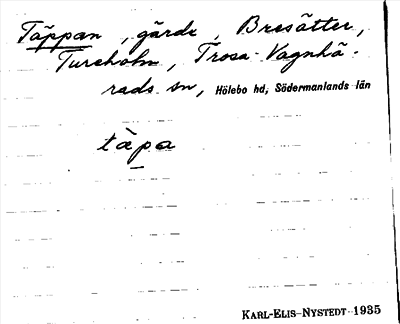 Täppan, gärde, Bresätter,
Tureholm, Trosa-Vagnhä-
rads sn, Hölebo hd, Södermanlands län
tàpa
KARL-ELIS NYSTEDT 1935